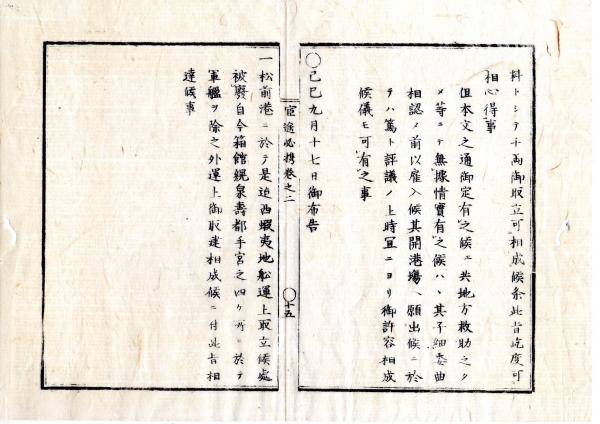 料トシテ千両御取立可相成候条此旨屹度可
相心得事
但本文之通御定有之候ニ共地方救助之タ
メ等ニテ無據情實有之候ハヽ其子細委曲
相認メ前以雇入候其開港場ヘ願出候ニ於
テハ篤ト評議ノ上時宜ニヨリ御許容相成
候儀モ可有之事
〇己巳九月十七日御布告
一松前港ニ於テ是迄西蝦夷地舩運上取立候處
被廢自今箱館幌泉壽都手宮之四ケ所ニ於テ
軍艦ヲ除之外運上御取建相成候ニ付此旨相
達候事
宦途必携巻之二
〇十五